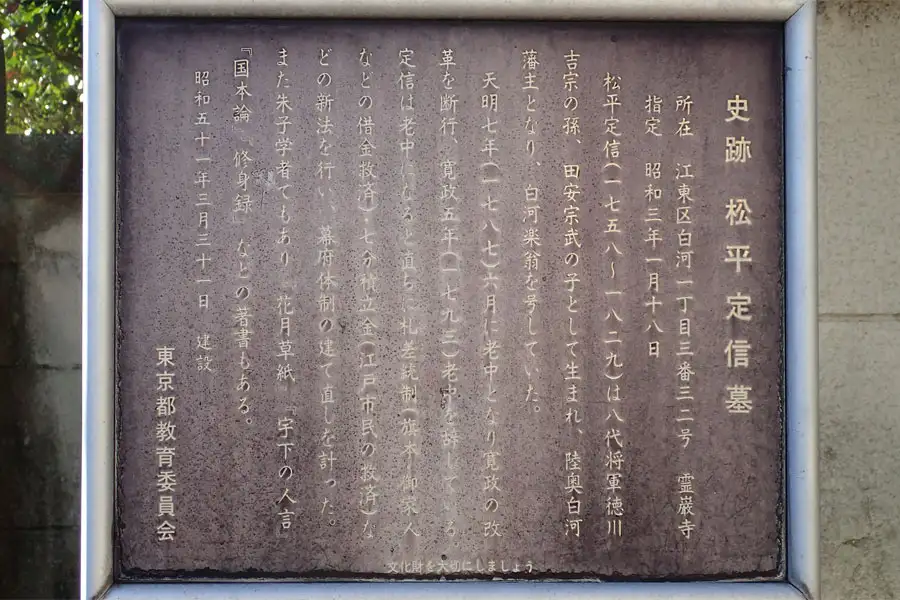 史跡 松平定信墓
所在 江東区白河一丁目三番三二号 霊巌寺
指定 昭和三年一月十八日
松平定信(一七五八〜一八二九)は八代将軍徳川
吉宗の孫、田安宗武の子として生まれ、陸奥白河
藩主となり、白河楽翁を号していた。
天明七年(一七八七)六月に老中となり寛政の改
革を断行、寛政五年(一七九三)老中を辞している
定信は老中になると直ちに札差統制(旗本・御家人
などの借金救済)・七分積立金(江戸市民の救済)な
どの新法を行い、幕府体制の建て直しを計った。
また朱子学者でもあり『花月草紙』『宇下の人言』
『国本論』『修身録』などの著書もある。
昭和五十一年三月三十一日 建設
東京都教育委員会
文化財を大切にしましょう